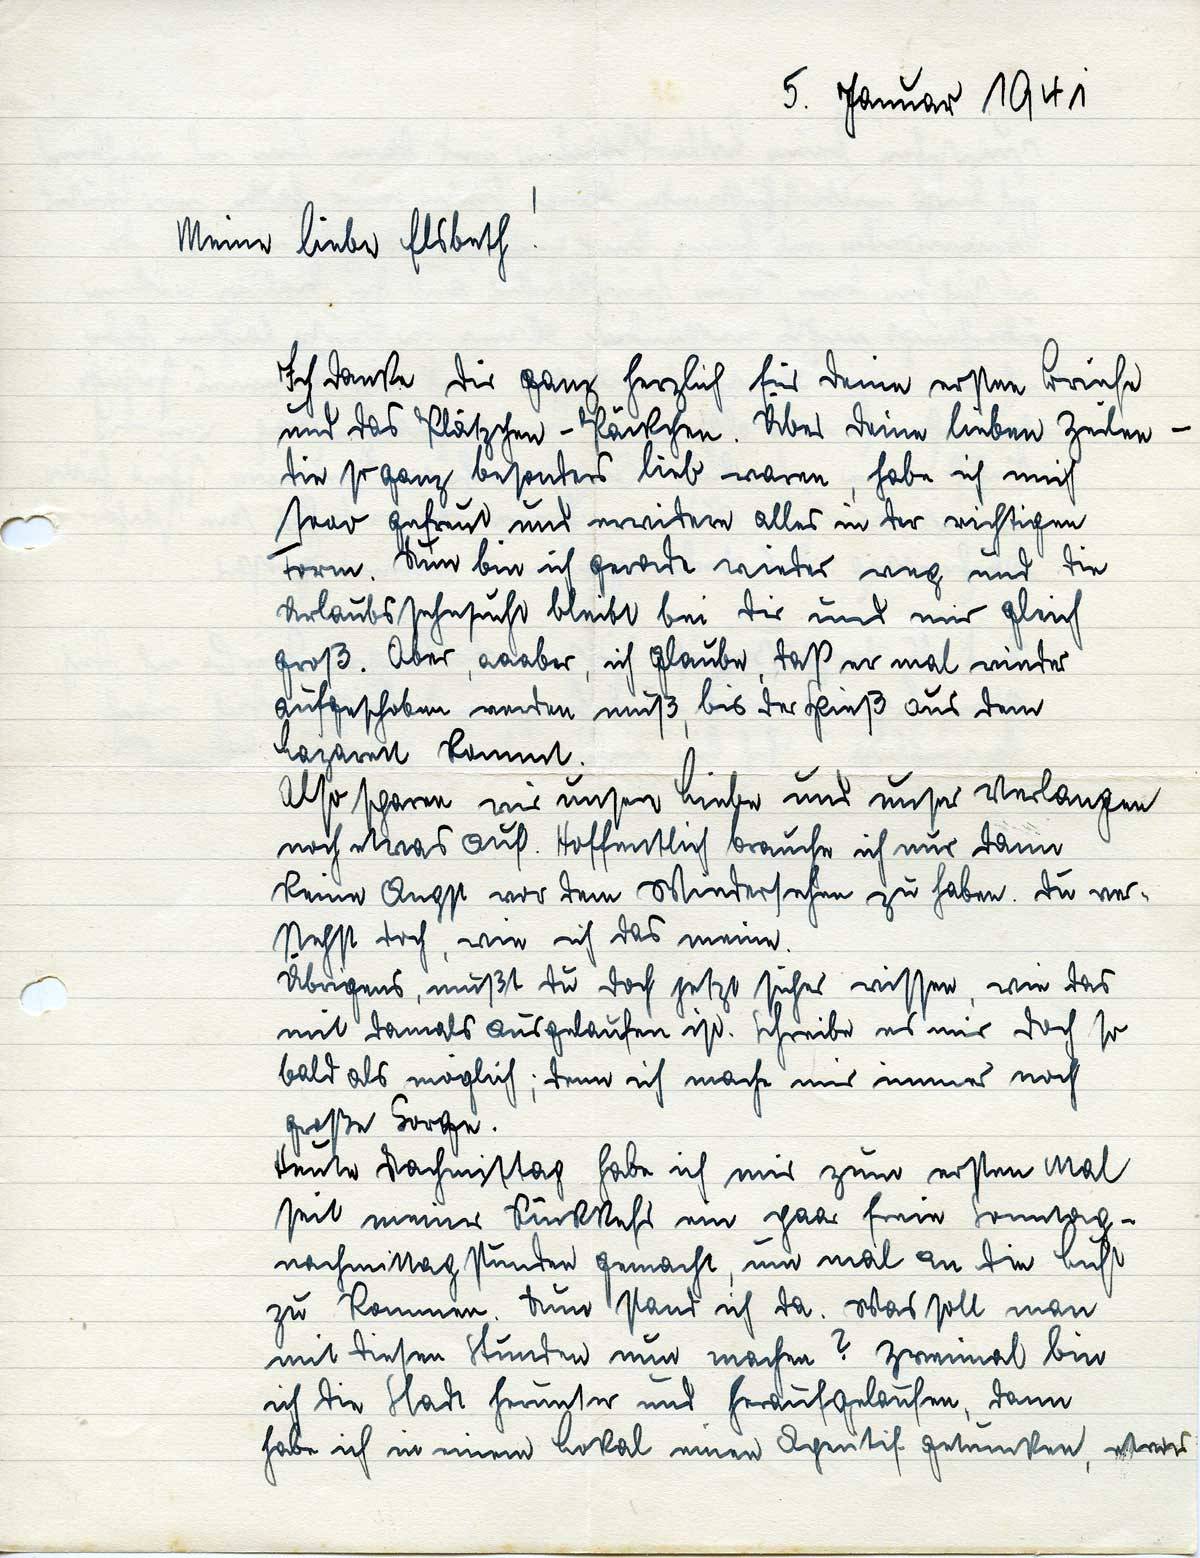 5. Januar 1941
Meine liebe Elsbeth!
Ich danke dir ganz herzlich für deine ersten Briefe
und das Plätzchen-Päckchen. Über deine lieben Zeilen -
die so ganz besonders lieb waren, habe ich mich
gefreut und erwidere alles in der richtigen
Form. Nun bin ich gerade wieder weg und die
Urlaubssehnsucht bleibt bei dir und mir gleich
groß. Aber, aaaber, ich glaube, daß er mal wieder
aufgeschoben werden muß, bis der Spieß aus dem
Lazarett kommt.
Also sparen wir unsere Liebe und unser Verlangen
noch etwas auf. Hoffentlich brauche ich nur dann
keine Angst vor dem Wiedersehen zu haben. Du ver-
stehst doch, wie ich das meine.
Übrigens, mußt du doch jetzt sicher wissen, wie das
mit damals ausgelaufen ist. Schreibe es mir doch so
bald als möglich; denn ich mache mir immer noch
große Sorge.
Heute Nachmittag habe ich mir zum ersten Mal
seit meiner Rückkehr ein paar freie Sonntag-
nachmittagstunden gemacht, um mal an die Luft
zu kommen. Nun stand ich da. Was soll man
mit diesen Stunden nun machen? Zweimal bin
ich die Stadt herunter und heraufgelaufen, dann
habe ich in einem Lokal einen Aperitif getrunken, etwas